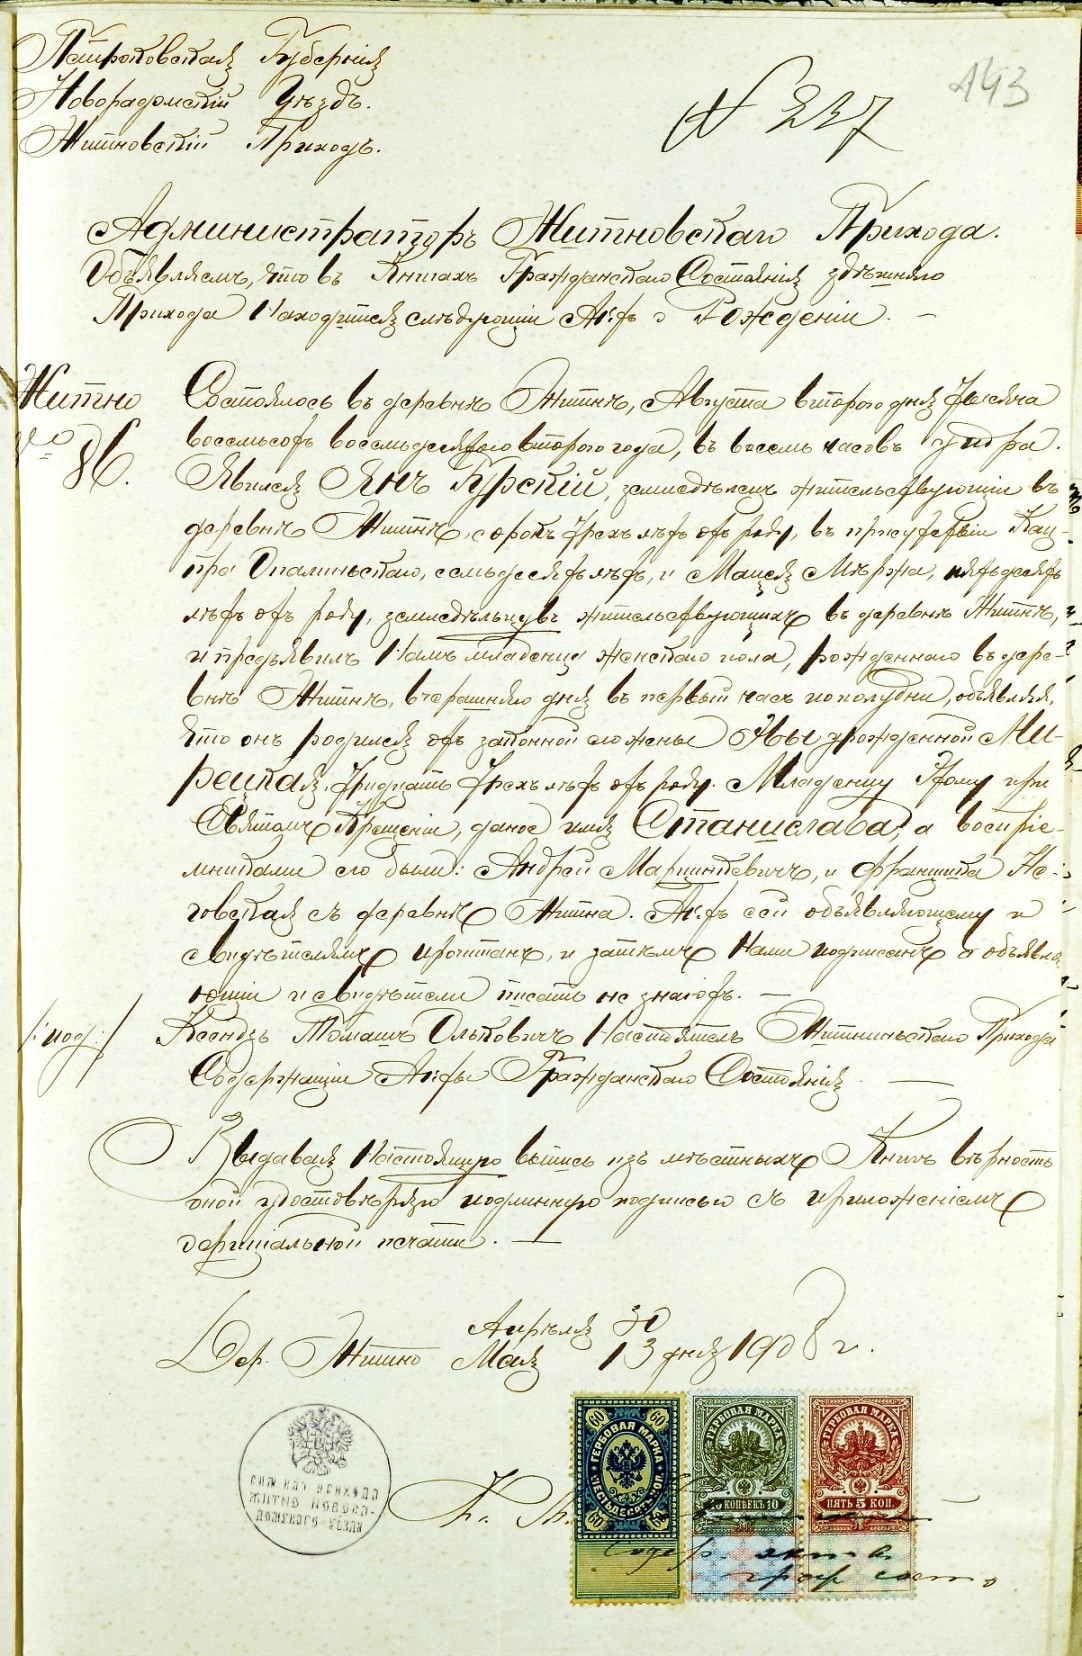 Петроковская Губернія
Новорадомскій Уѣздъ.
Житновскій Приходъ.
№ 227
143
Администраторъ Житновскаго Прихода.
Объявляемъ, что въ Книгахъ Гражданскаго Состоянія здѣшняго
Прихода Находится слѣдующій Актъ о Рожденіи. —
Житно
№ 86.
Состоялось въ деревнѣ Житнѣ, Августа втораго дня тысяча
восемьсотъ восемьдесятъ втораго года, въ восемь часовъ утра.
Явился Янъ Гурскій, земледѣлецъ жительствующій въ
деревнѣ Житнѣ, сорокъ трехъ лѣтъ отъ роду, въ присутствіи Кац-
пра Опалиньскаго, семьдесятъ лѣтъ, и Мацея Мѣржа, пятьдесятъ
лѣтъ отъ роду, земледѣльцувъ жительствующихъ въ деревнѣ Житнѣ,
и предъявилъ Намъ младенца женскаго пола, рожденнаго въ дере-
внѣ Житнѣ, вчерашняго дня въ первый часъ пополудни, объявляя,
что онъ родился отъ законной его жены Эвы урожденной Ми-
рецкая, тридцать трехъ лѣтъ отъ роду. Младенцу этому при
Святомъ Крещеніи, данно имя Станислава, а воспріе-
мниками его были: Андрей Марцинкевичъ, и Францишка Но-
говская съ деревнѣ Житна. Актъ сей объявляющему и
свидѣтелямъ прочитанъ, и затѣмъ Нами подписанъ а объявля-
ющій и свидѣтели писать не знаютъ. —
/:под:/ Ксендзъ Томашъ Ольковичъ Настоятель Житниньскаго Прихода
Содержащій Акты Гражданскаго Состоянія. —
Выдавая Настоящую выпись изъ мѣстныхъ Книгъ вѣрность
оной удостовѣряю подлинную подписью съ приложеніемъ
оффиціальной печати. —
Апрѣля 30
Дер. Житно Мая 13 дня 1908 г.
60 60
ГЕРБОВАЯ МАРКА
ШЕСТЬДЕСЯТЪ КОП.
60 60
ГЕРБОВАЯ МАРКА
10 КОПѢЕКЪ 10
ГЕРБОВАЯ МАРКА
ПЯТЬ 5 КОП.
Содер. акты
граж. состо